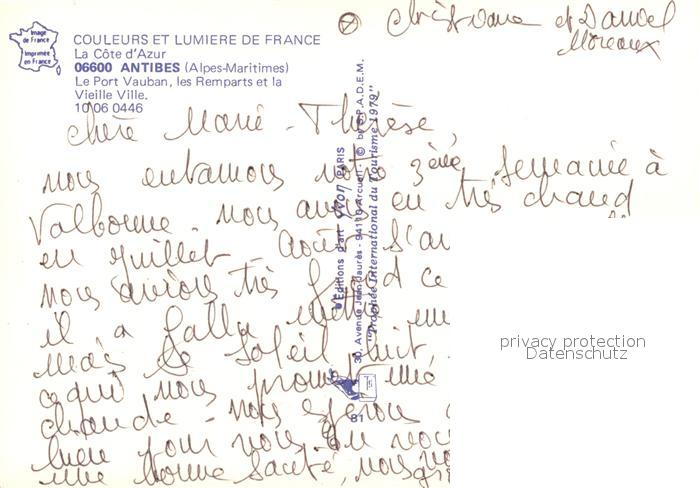 Image
de France
Imprimée
en France
COULEURS ET LUMIERE DE FRANCE
La Côte d'Azur
06600 ANTIBES (Alpes-Maritimes)
Le Port Vauban, les Remparts et la
Vieille Ville.
10 06 0446
Christiane et Daniel
Moreaux
Chère Marie-Thérèse,
nous entamons notre 3ème semaine à
Valbonne. nous avons eu très chaud
en juillet Août
nous avions très froid ce
il a fallu mettre
mais le soleil luit
ce qui nous promet une
chaude - nous espérons
bien pour vous
une bonne santé, nous
"Editions d'art YVON PARIS
30, Avenue Jean-Jaurès - 94110 Arcueil © by S.P.A.D.E.M.
"Trophée International du Tourisme 1979"
81
privacy protection
Datenschutz